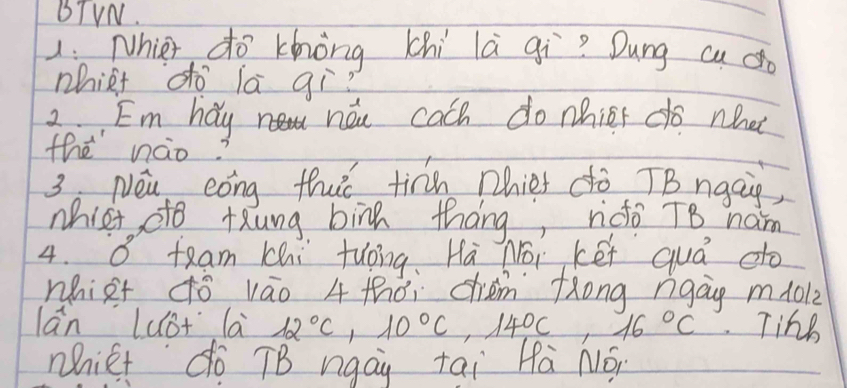 BTVN.
1. Nhiệt độ không khí là gì? Dụng cụ đo
nhiệt độ là gì?
2. Em hãy nêu cách đo nhiệt độ như
thế nào?
3. Nêu công thức tính nhiệt độ TB ngày,
nhiệt độ trung bình tháng, nđộ TB năm
4. Ở trạm khí tượng Hà Nội kết quả đo
nhiệt độ vào 4 thời điểm trong ngày
lần lượt là 12°C, 10°C, 14°C, 16°C. Tính
nhiệt độ TB ngày tại Hà Nội.